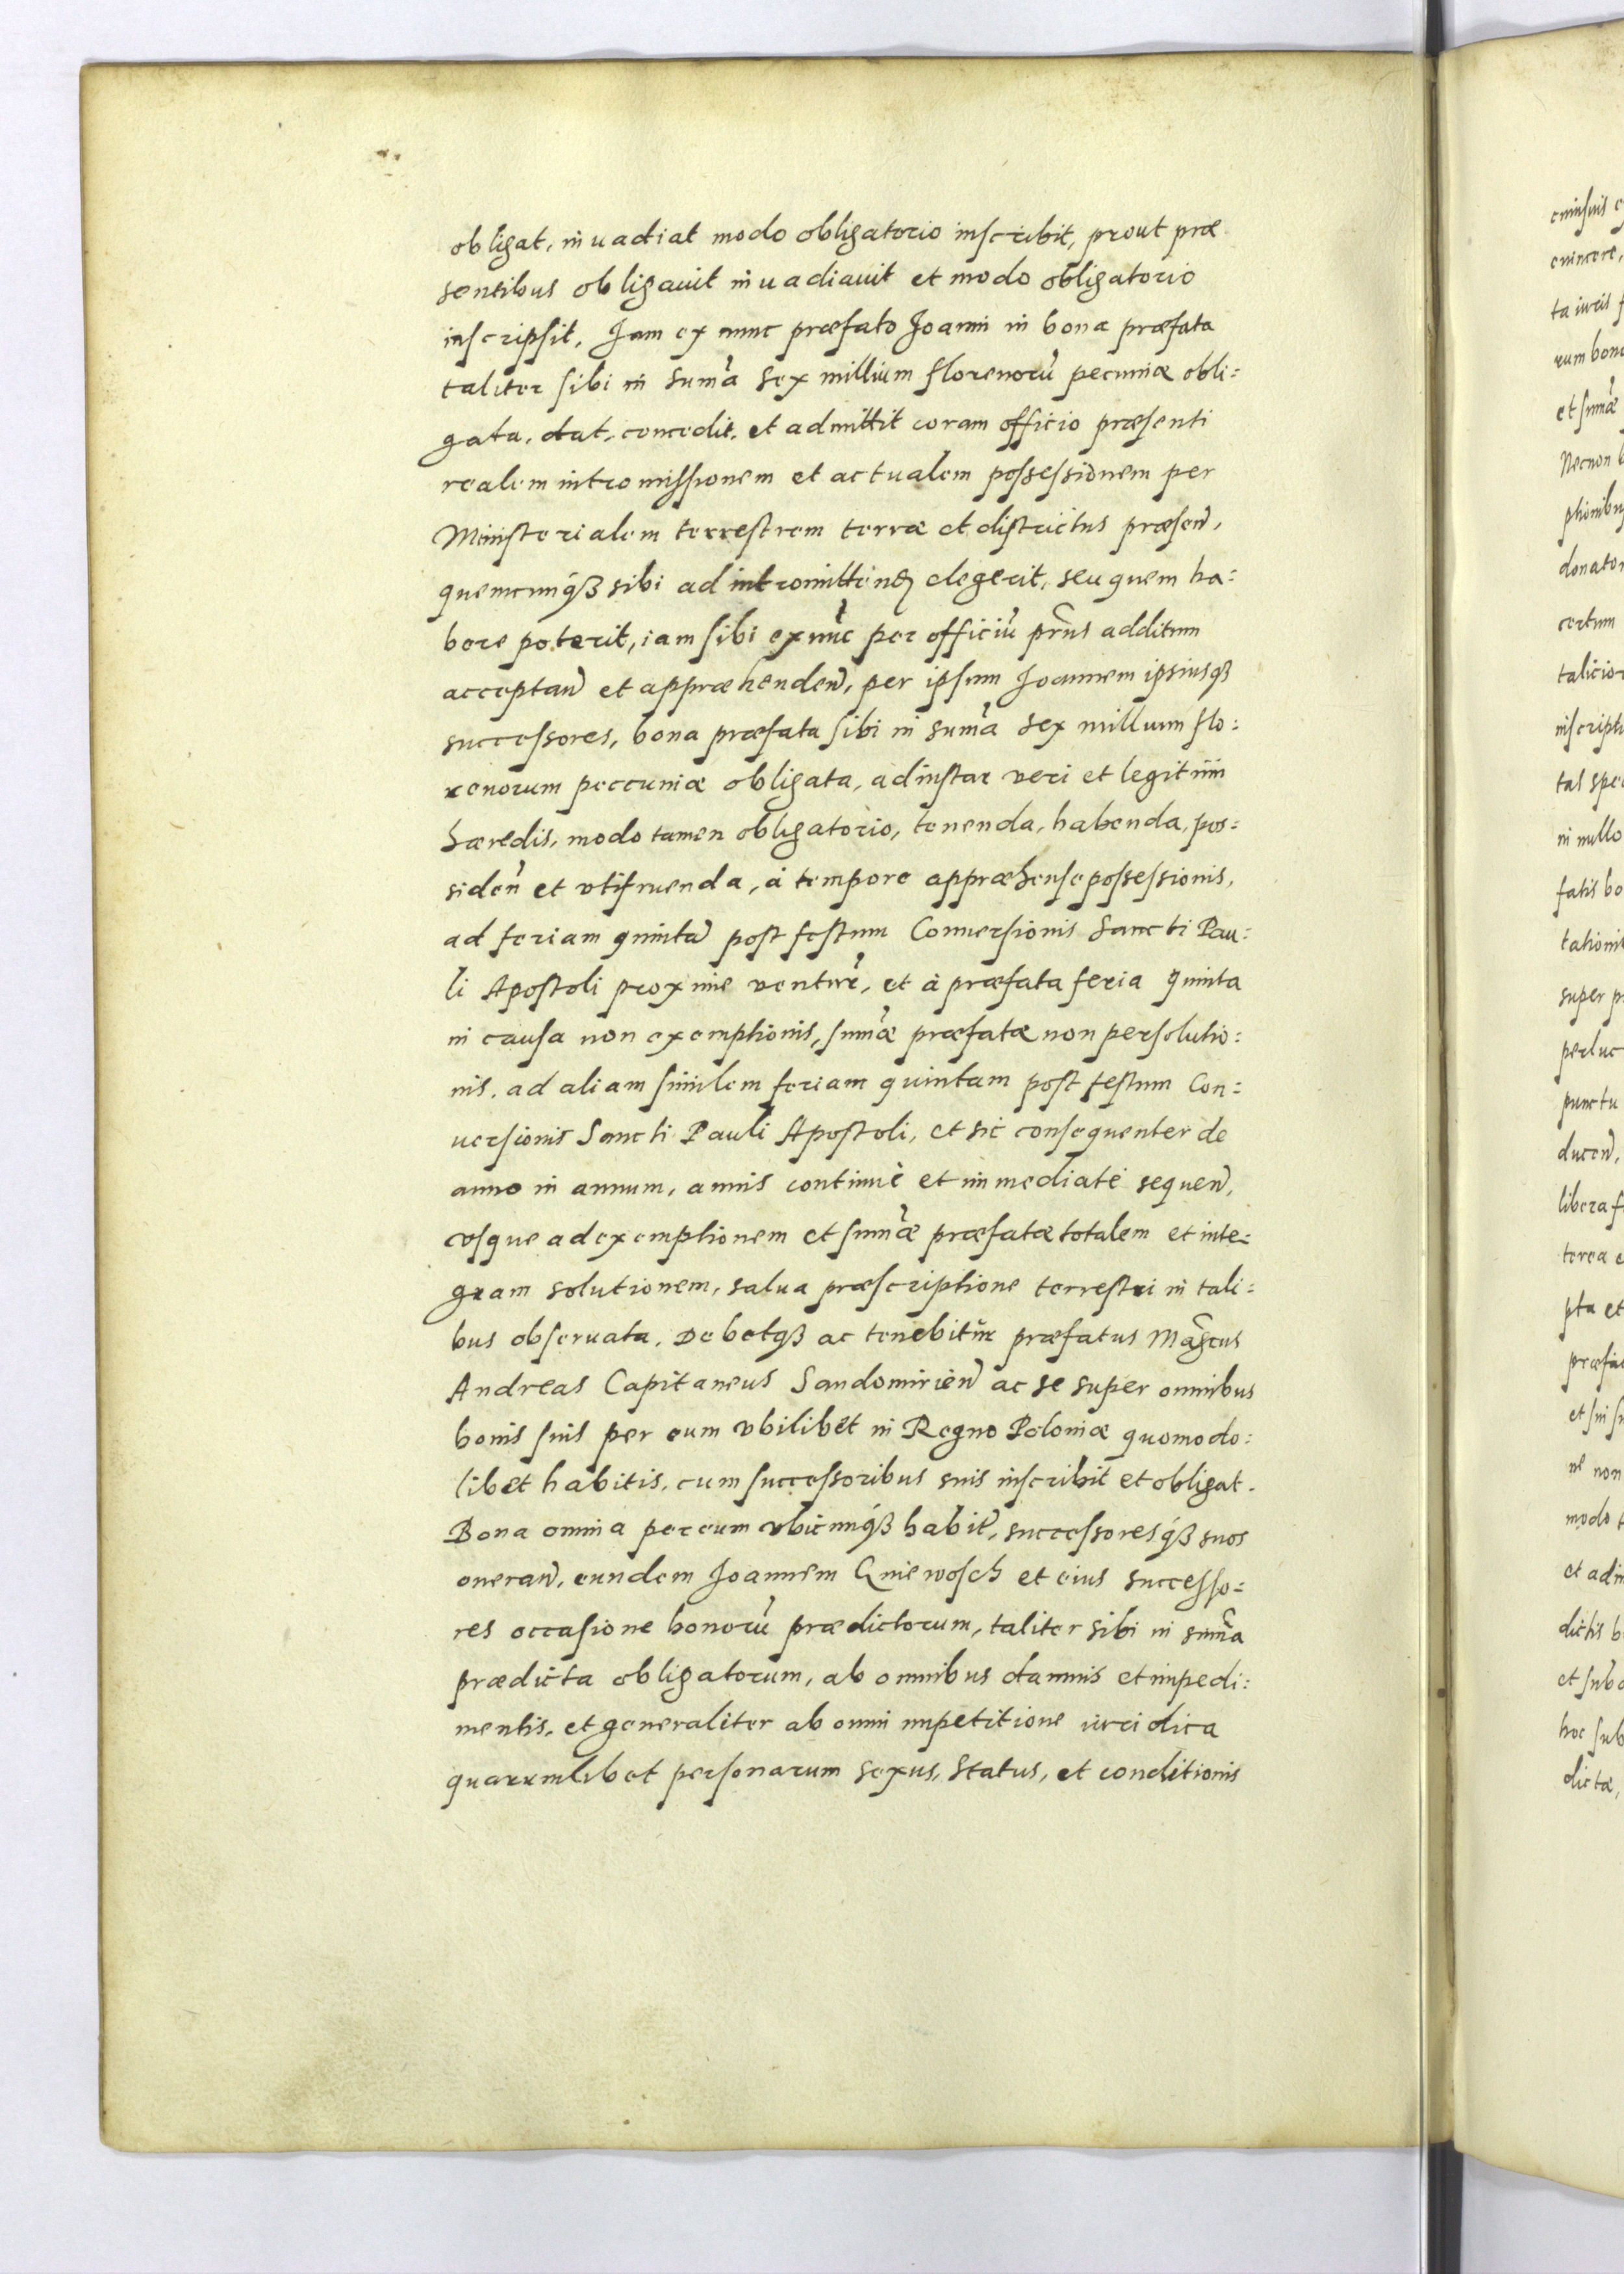 obligat, inuadiat modo obligatorio inscribit, prout præ
sentibus obligauit inuadiauit et modo obligatorio
inscripsit, Jam ex nunc præfato Joanni in bona præfata
taliter sibi in sum̃a sex millium florenorũ pecuniæ obli:
gata, dat, concedit, et admittit coram officio præsenti
realem intromissionem et actualem possessionem per
Ministerialem terrestrem terræ et districtus præsen̄,
quemcunq́ꝫ sibi ad intromitten̄ elegerit, seu quem ha:
bere poterit, iam sibi ex nũc per officiũ pr̃ns additum
acceptan̄ et appræhenden̄, per ipsum Joannem ipsiusqꝫ
successores, bona præfata sibi in sum̃a sex millium flo:
renorum peccuniæ obligata, ad instar veri et legitimi
hæredis, modo tamen obligatorio, tenenda, habenda, pos:
siden̄ et vtifruenda, à tempore appræhense possessionis,
ad feriam quintã post festum Conuersionis Sancti Pau:
li Apostoli proxime ventur̃, et à præfata feria quinta
in causa non exemptionis, sum̃æ præfatæ non persolutio:
nis, ad aliam similem feriam quintam post festum Con:
uersionis Sancti Pauli Apostoli, et sic consequenter de
anno in annum, annis continuè et immediatè sequen̄,
vsque ad exemptionem et sum̃æ præfatæ totalem et inte:
gram solutionem, salua præscriptione terrestri in tali:
bus obseruata. Debetqꝫ ac tenebitur præfatus Mãgcus
Andreas Capitaneus Sandomirien̄ ac se super omnibus
bonis suis per eum vbilibet in Regno Poloniæ quomodo:
libet habitis, cum successoribus suis inscribit et obligat.
Bona omnia per eum vbicunq́ꝫ habit̃, successoresq́ꝫ suos
oneran̄, eundem Joannem Gniewosch et eius successo:
res occasione bonorũ prædictorum, taliter sibi in sum̃a
prædicta obligatorum, ab omnibus damnis et impedi:
mentis, et generaliter ab omni impetitione iuridica
quarumlibet personarum sexus, status, et conditionis